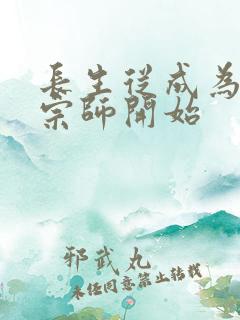 長生從成為
宗師開始
邪武丸
未經同意禁止轉載